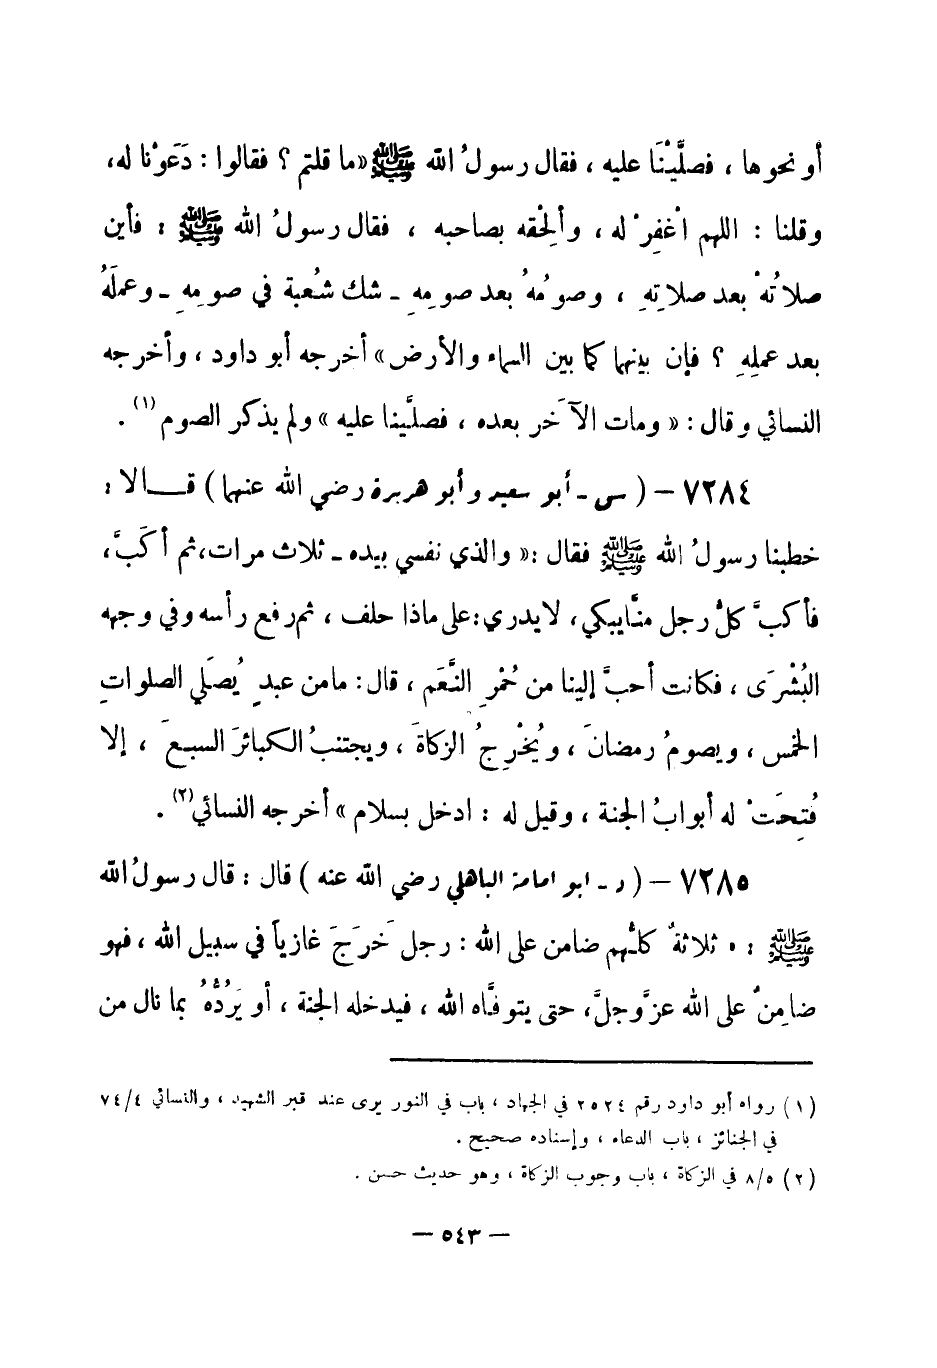 أو نحوها ، فصلَّيْنَا عليه ، فقال رسولُ الله ﷺ «ما قلتم ؟ فقالوا : دَعَوْنا له،
وقلنا : اللهم اغْفِرْ له ، وأَلْحِقه بصاحبه ، فقال رسولُ الله ﷺ : فأين
صلاتُهْ بعد صلاتِهِ ، وصومُهُ بعد صومِهِ ـ شك شُعبة في صومِهِ ـ وعملَهُ
بعد عملِهِ ؟ فإن بينهما كما بين السماء والأرض» أخرجه أبو داود ، وأخرجه
النسائي وقال : « ومات الآخَر بعده ، فصلَّينا عليه » ولم يذكر الصوم (١) .
٧٢٨٤ – ( س ـ أبو سعيد وأبو هريرة رضي الله عنهما ) قــالا :
خطبنا رسولُ الله ﷺ فقال :« والذي نفسي بيده ـ ثلاث مرات، ثم أكَبَّ،
فأكبَّ كلُّ رجل منَّا يبكي، لا يدري: على ماذا حلف ، ثم رفع رأسه وفي وجهه
البُشْرَى ، فكانت أحبَّ إلينا من حُمْرِ النَّعَم ، قال : ما من عبدٍ يُصَلِّي الصلواتِ
الخمس ، ويصومُ رمضانَ ، ويُخْرِجُ الزكاةَ ، ويجتنبُ الكبائرَ السبعَ ، إلا
فُتِحَتْ له أبوابُ الجنة ، وقيل له : ادخل بسلام » أخرجه النسائي (٢) .
٧٢٨٥ – ( د ـ أبو أمامة الباهلي رضي الله عنه ) قال : قال رسولُ الله
ﷺ : « ثلاثةٌ كلُّهم ضامن على الله : رجل خَرَجَ غازياً في سبيل الله ، فهو
ضامِنٌ على الله عزَّ وجلَّ، حتى يتوفَّاه الله ، فيدخله الجنة ، أو يَرُدُّهُ بما نال من
(١) رواه أبو داود رقم ٢٥٢٤ في الجهاد ، باب في النور يرى عند قبر الشهيد ، والنسائي ٧٤/٤
في الجنائز ، باب الدعاء ، وإسناده صحيح .
(٢) ٨/٥ في الزكاة ، باب وجوب الزكاة ، وهو حديث حسن .
— ٥٤٣ —